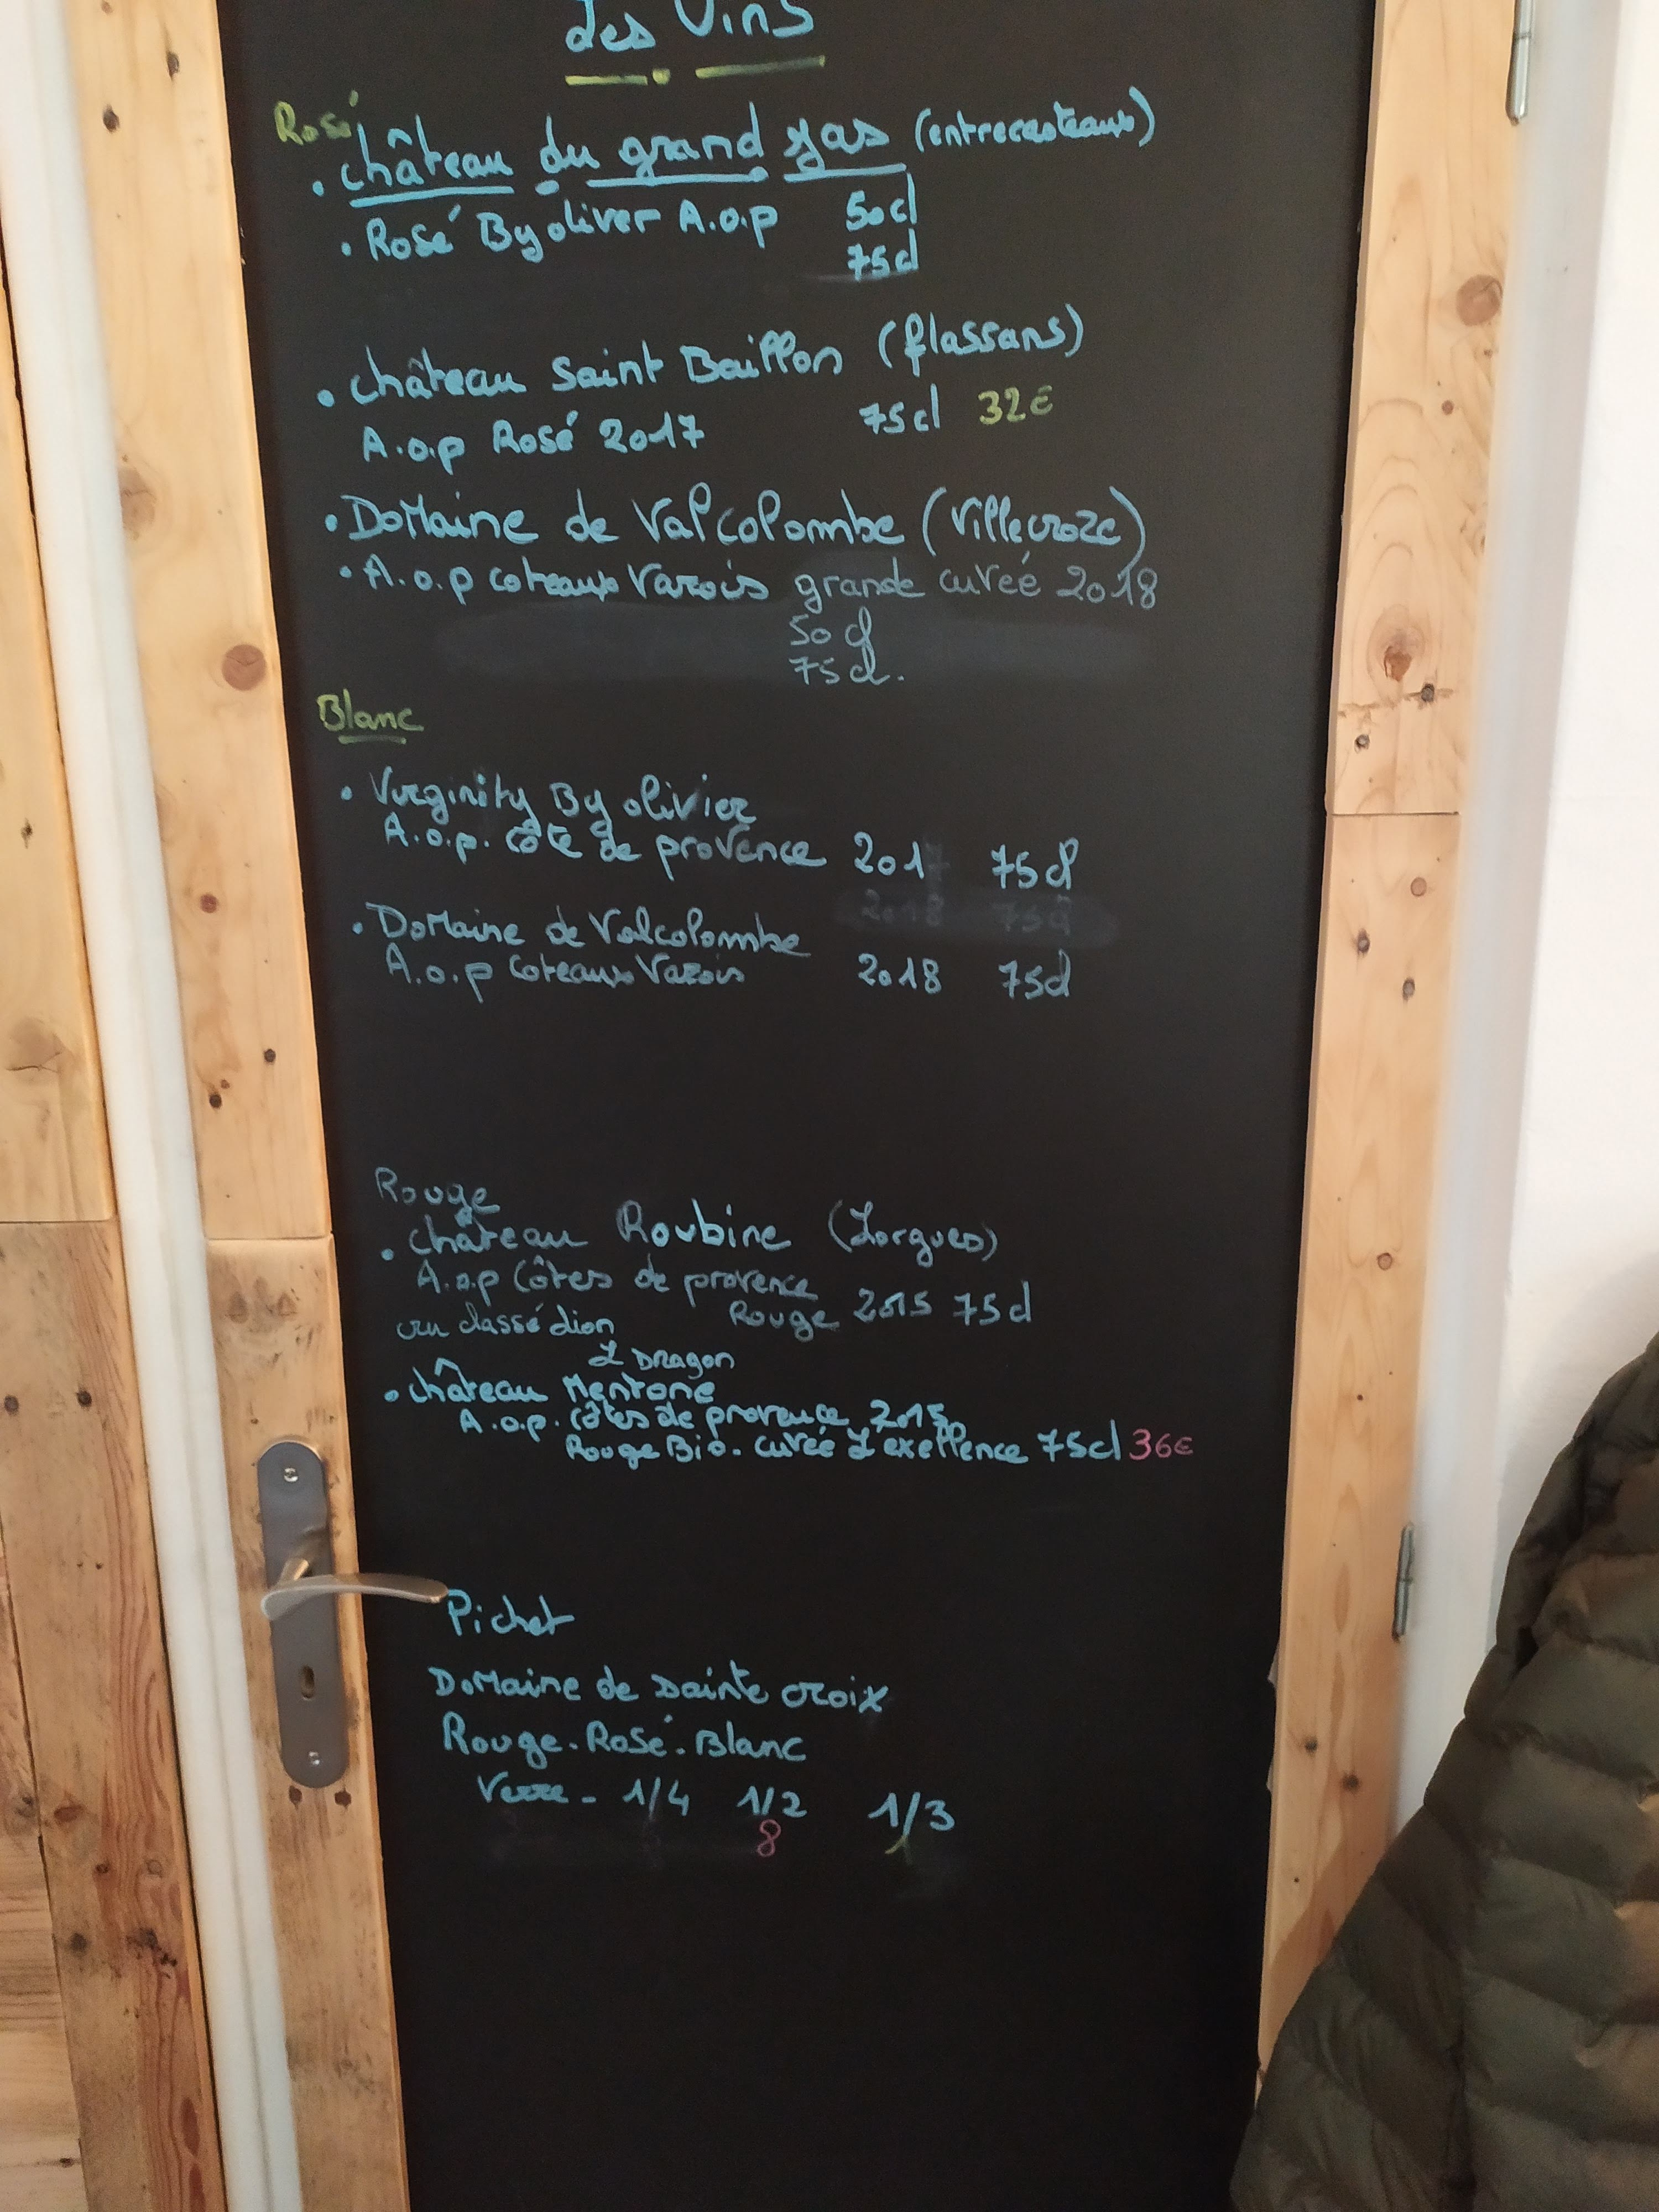 des Vins
Rosé
. château du grand yas (entrecasteaux)
. Rosé By oliver A.o.p 50cl
75cl
. château Saint Baillon (flassans)
A.o.p Rosé 2017 75cl 32€
. Domaine de Valcolombe (Villecroze)
. A.o.p coteaux Varois grande cuveé 2018
50 cl
75cl.
Blanc
. Virginity By olivier
A.o.p. côte de provence 2017 75cl
2018 75cl
. Domaine de Valcolombe
A.o.p Coteaux Varois 2018 75cl
Rouge
. château Roubine (Lorgues)
A.o.p Côtes de provence
cru classé Lion Rouge 2015 75cl
& Dragon
. château Mentone
A.o.p. côtes de provence 2015
Rouge Bio. cuvée L'exellence 75cl 36€
Pichet
Domaine de Sainte croix
Rouge. Rosé. Blanc
Verre - 1/4 1/2 1/3
8